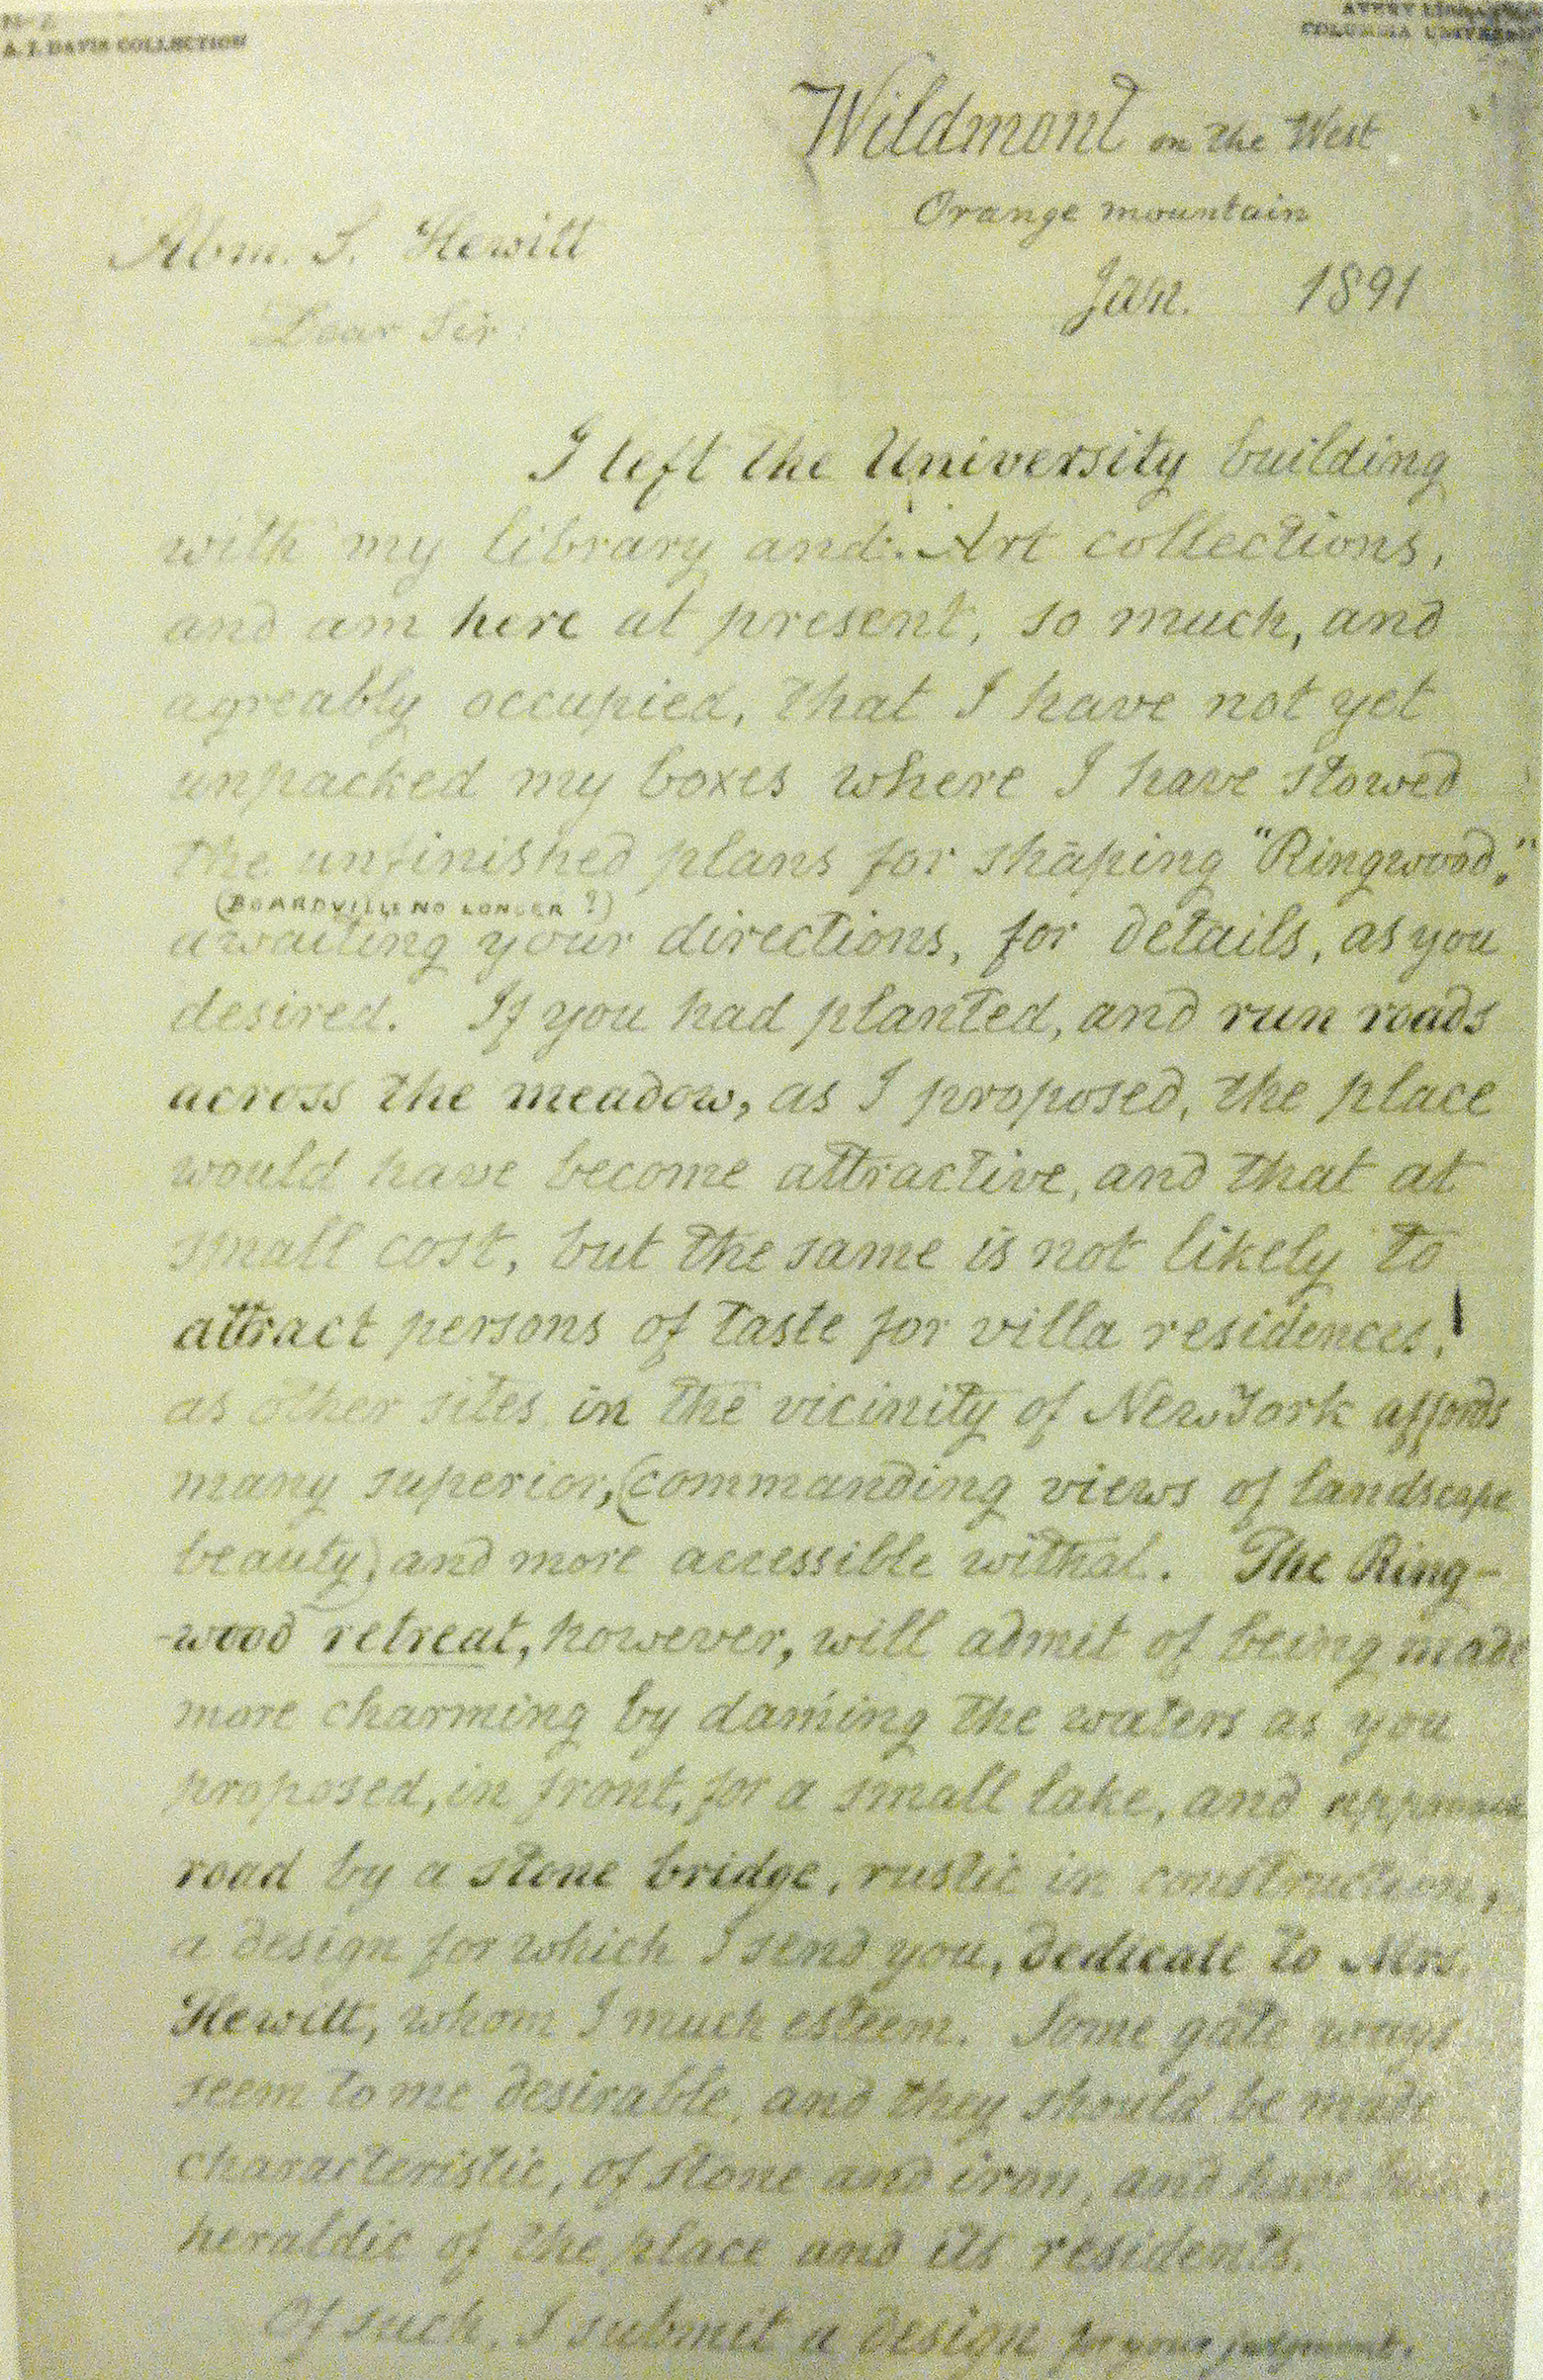 A. J. DAVIS COLLECTION
AVERY
COLUMBIA UNIVERSITY
Wildmont on the West
Orange mountain
Abm. S. Hewitt
Jan. 1891
Dear Sir:
I left the University building
with my library and Art collections,
and am here at present, so much, and
agreably occupied, that I have not yet
unpacked my boxes where I have stowed
the unfinished plans for shaping "Ringwood,"
(BOARDVILLE NO LONGER?)
awaiting your directions, for details, as you
desired. If you had planted, and run roads
across the meadow, as I proposed, the place
would have become attractive, and that at
small cost, but the same is not likely to
attract persons of taste for villa residences,
as other sites in the vicinity of New York affords
many superior, (commanding views of landscape
beauty) and more accessible withal. The Ring-
-wood retreat, however, will admit of being made
more charming by daming the waters as you
proposed, in front, for a small lake, and approach
road by a stone bridge, rustic in construction,
a design for which I send you, dedicate to Mrs.
Hewitt, whom I much esteem. Some gate ways
seem to me desirable, and they should be made
characteristic, of stone and iron, and have
heraldic of the place and its residents.
Of such, I submit a design for your judgment.